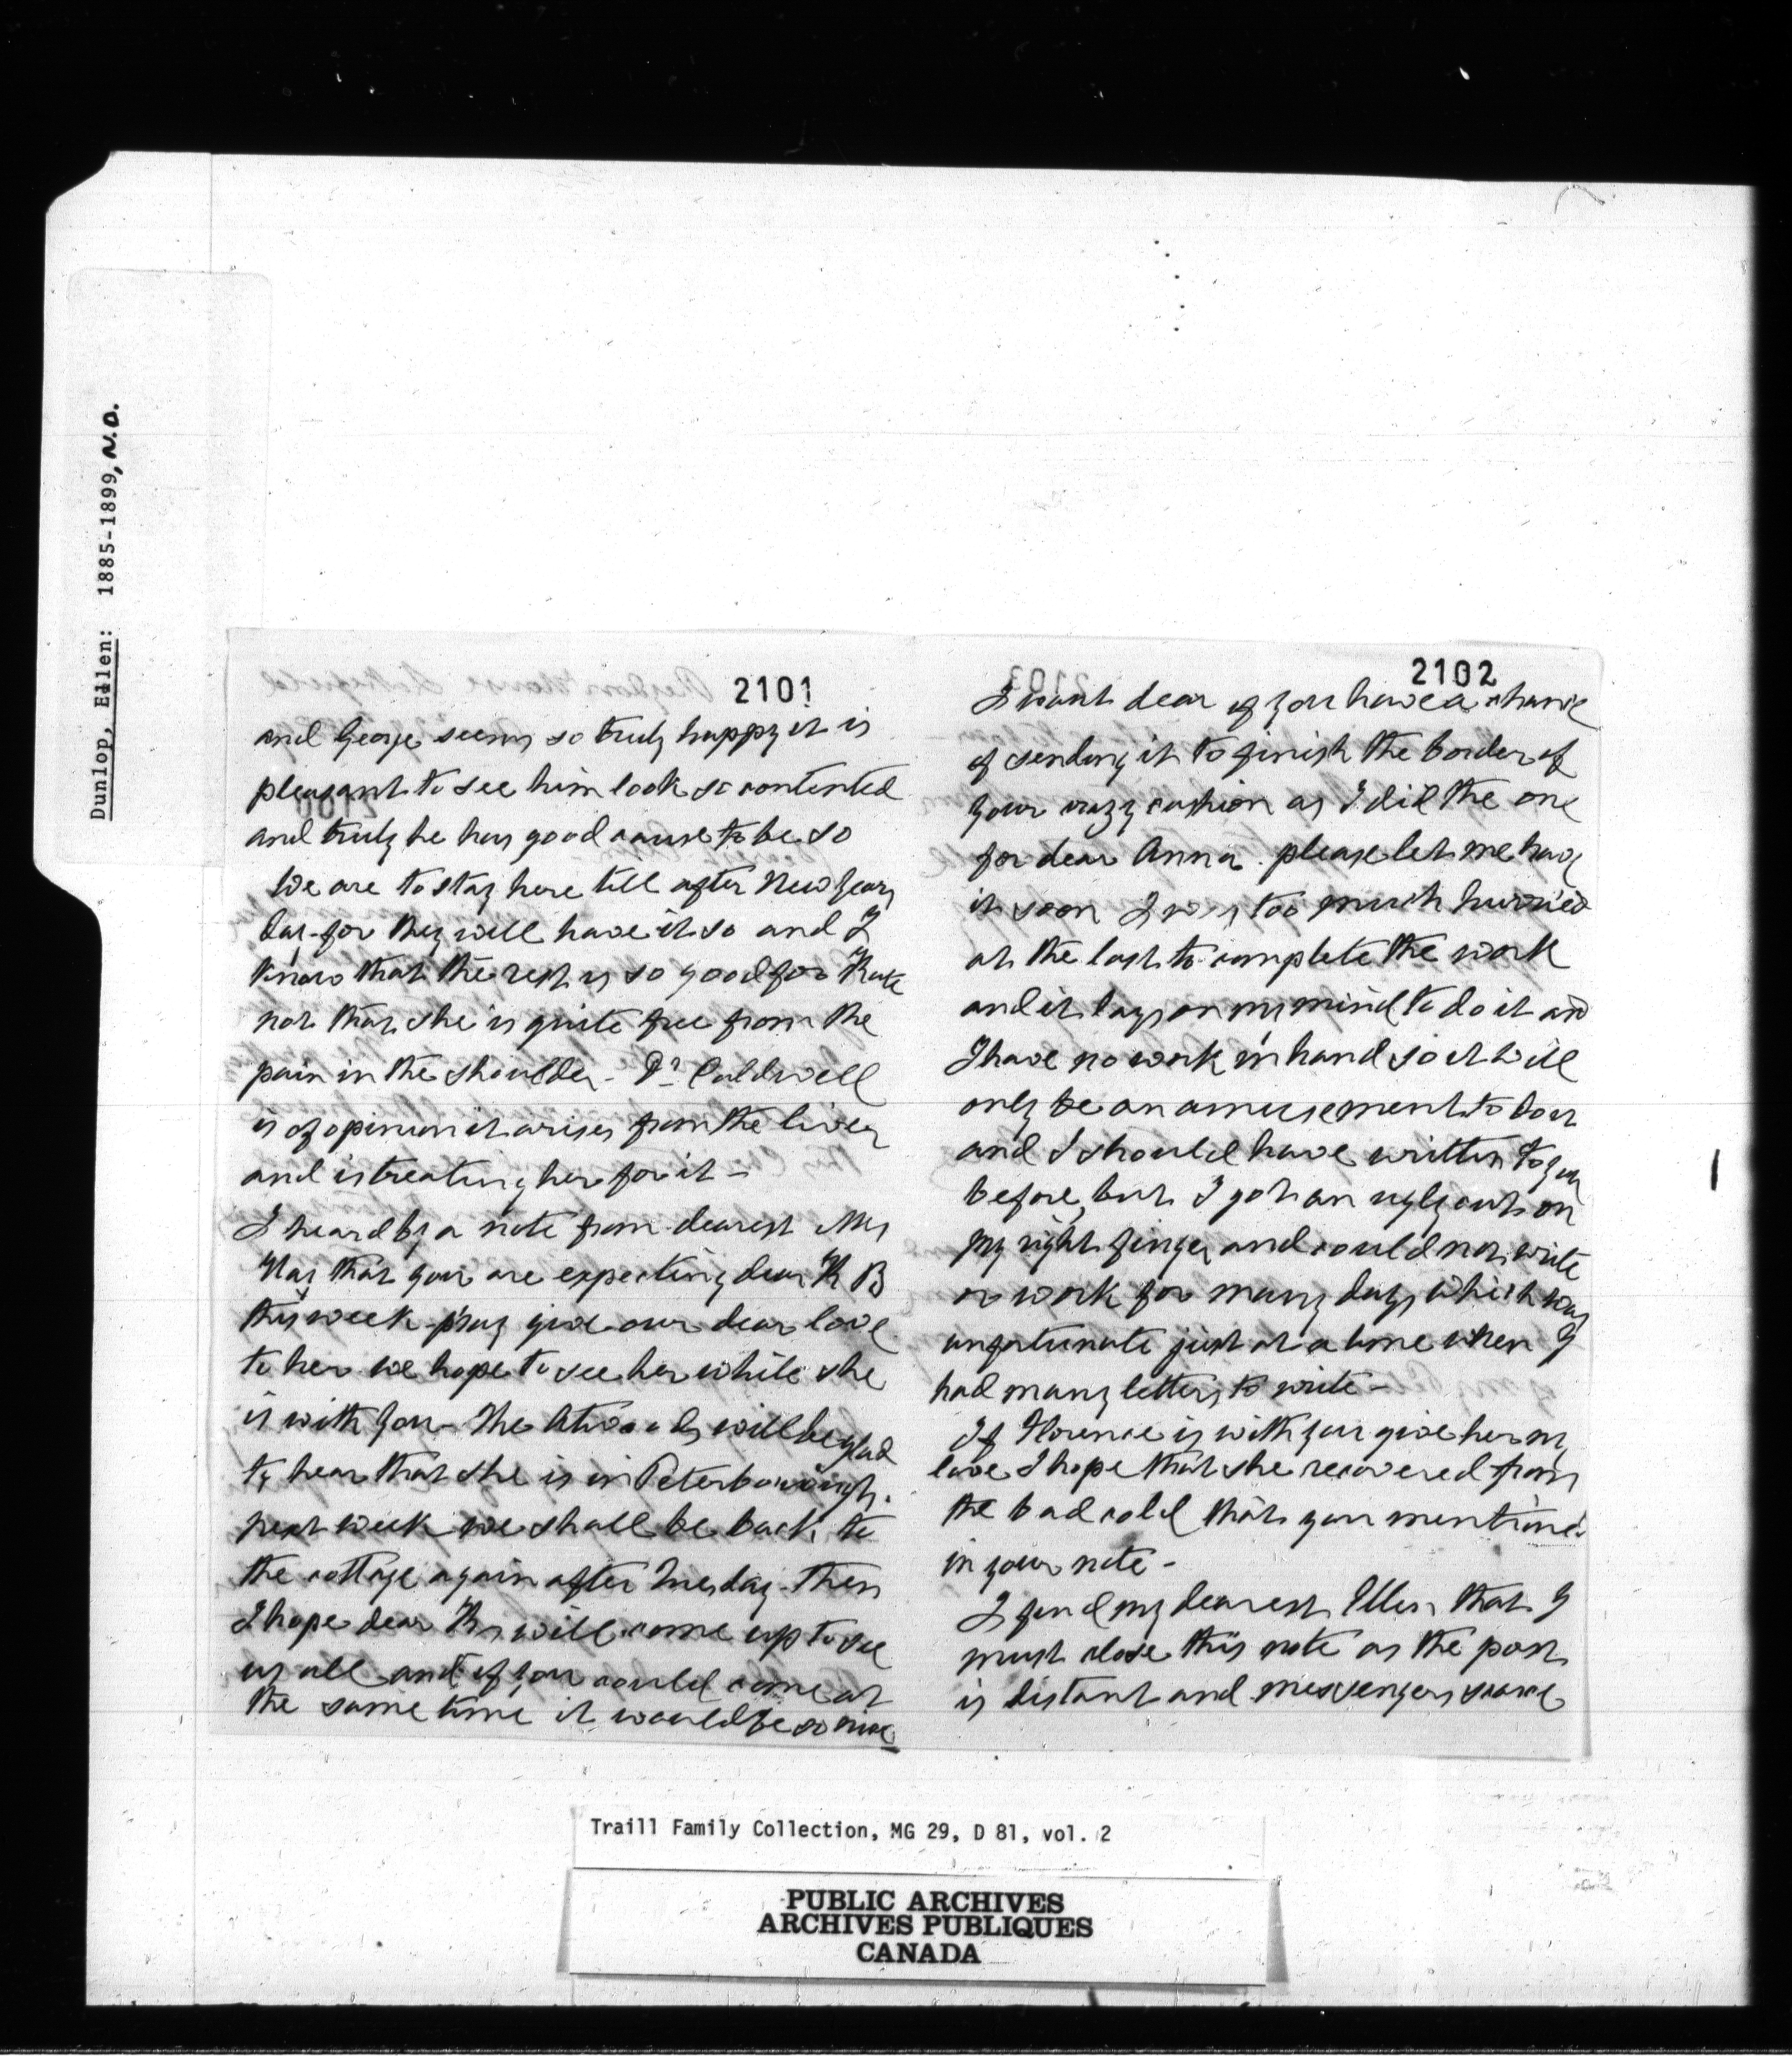 Dunlop, Ellen: 1885-1899, N.D.
2101
and George seems so truly happy it is
pleasant to see him look so contented
and truly he has good cause to be so
We are to stay here till after New Years
day for they will have it so and I
know that the rest is so good for Kate
not that she is quite free from the
pain in the shoulder - Dr Caldwell
is of opinion it arises from the liver
and is treating her for it -
I heard by a note from dearest Mrs
that you are expecting dear K B
this week - pray give our dear love
to her we hope to see her while she
is with you - The Atwoods will be glad
to hear that she is in Peterborough.
next week we shall be back to
the cottage again after Tuesday - then
I hope dear will come up to see
us all and if you could come at
the same time it would be so nice
2102
I want dear if you have a chance
of sending it to finish the border of
your crazy cushion as I did the one
for dear Anna. please let me have
it soon I was too much hurried
at the last to complete the work
and it lays on my mind to do it and
I have no work in hand so it will
only be an amusement to
and I should have written to you
before, but I got an ugly cut on
my right finger and could not write
or work for many days which was
unfortunate just at a time when I
had many letters to write -
If Florence is with you give her my
love I hope that she recovered from
the bad cold that you mentioned
in your note -
I find my dearest Ellen that I
must close this note as the post
is distant and messengers scarce
Traill Family Collection, MG 29, D 81, vol. 2
PUBLIC ARCHIVES
ARCHIVES PUBLIQUES
CANADA